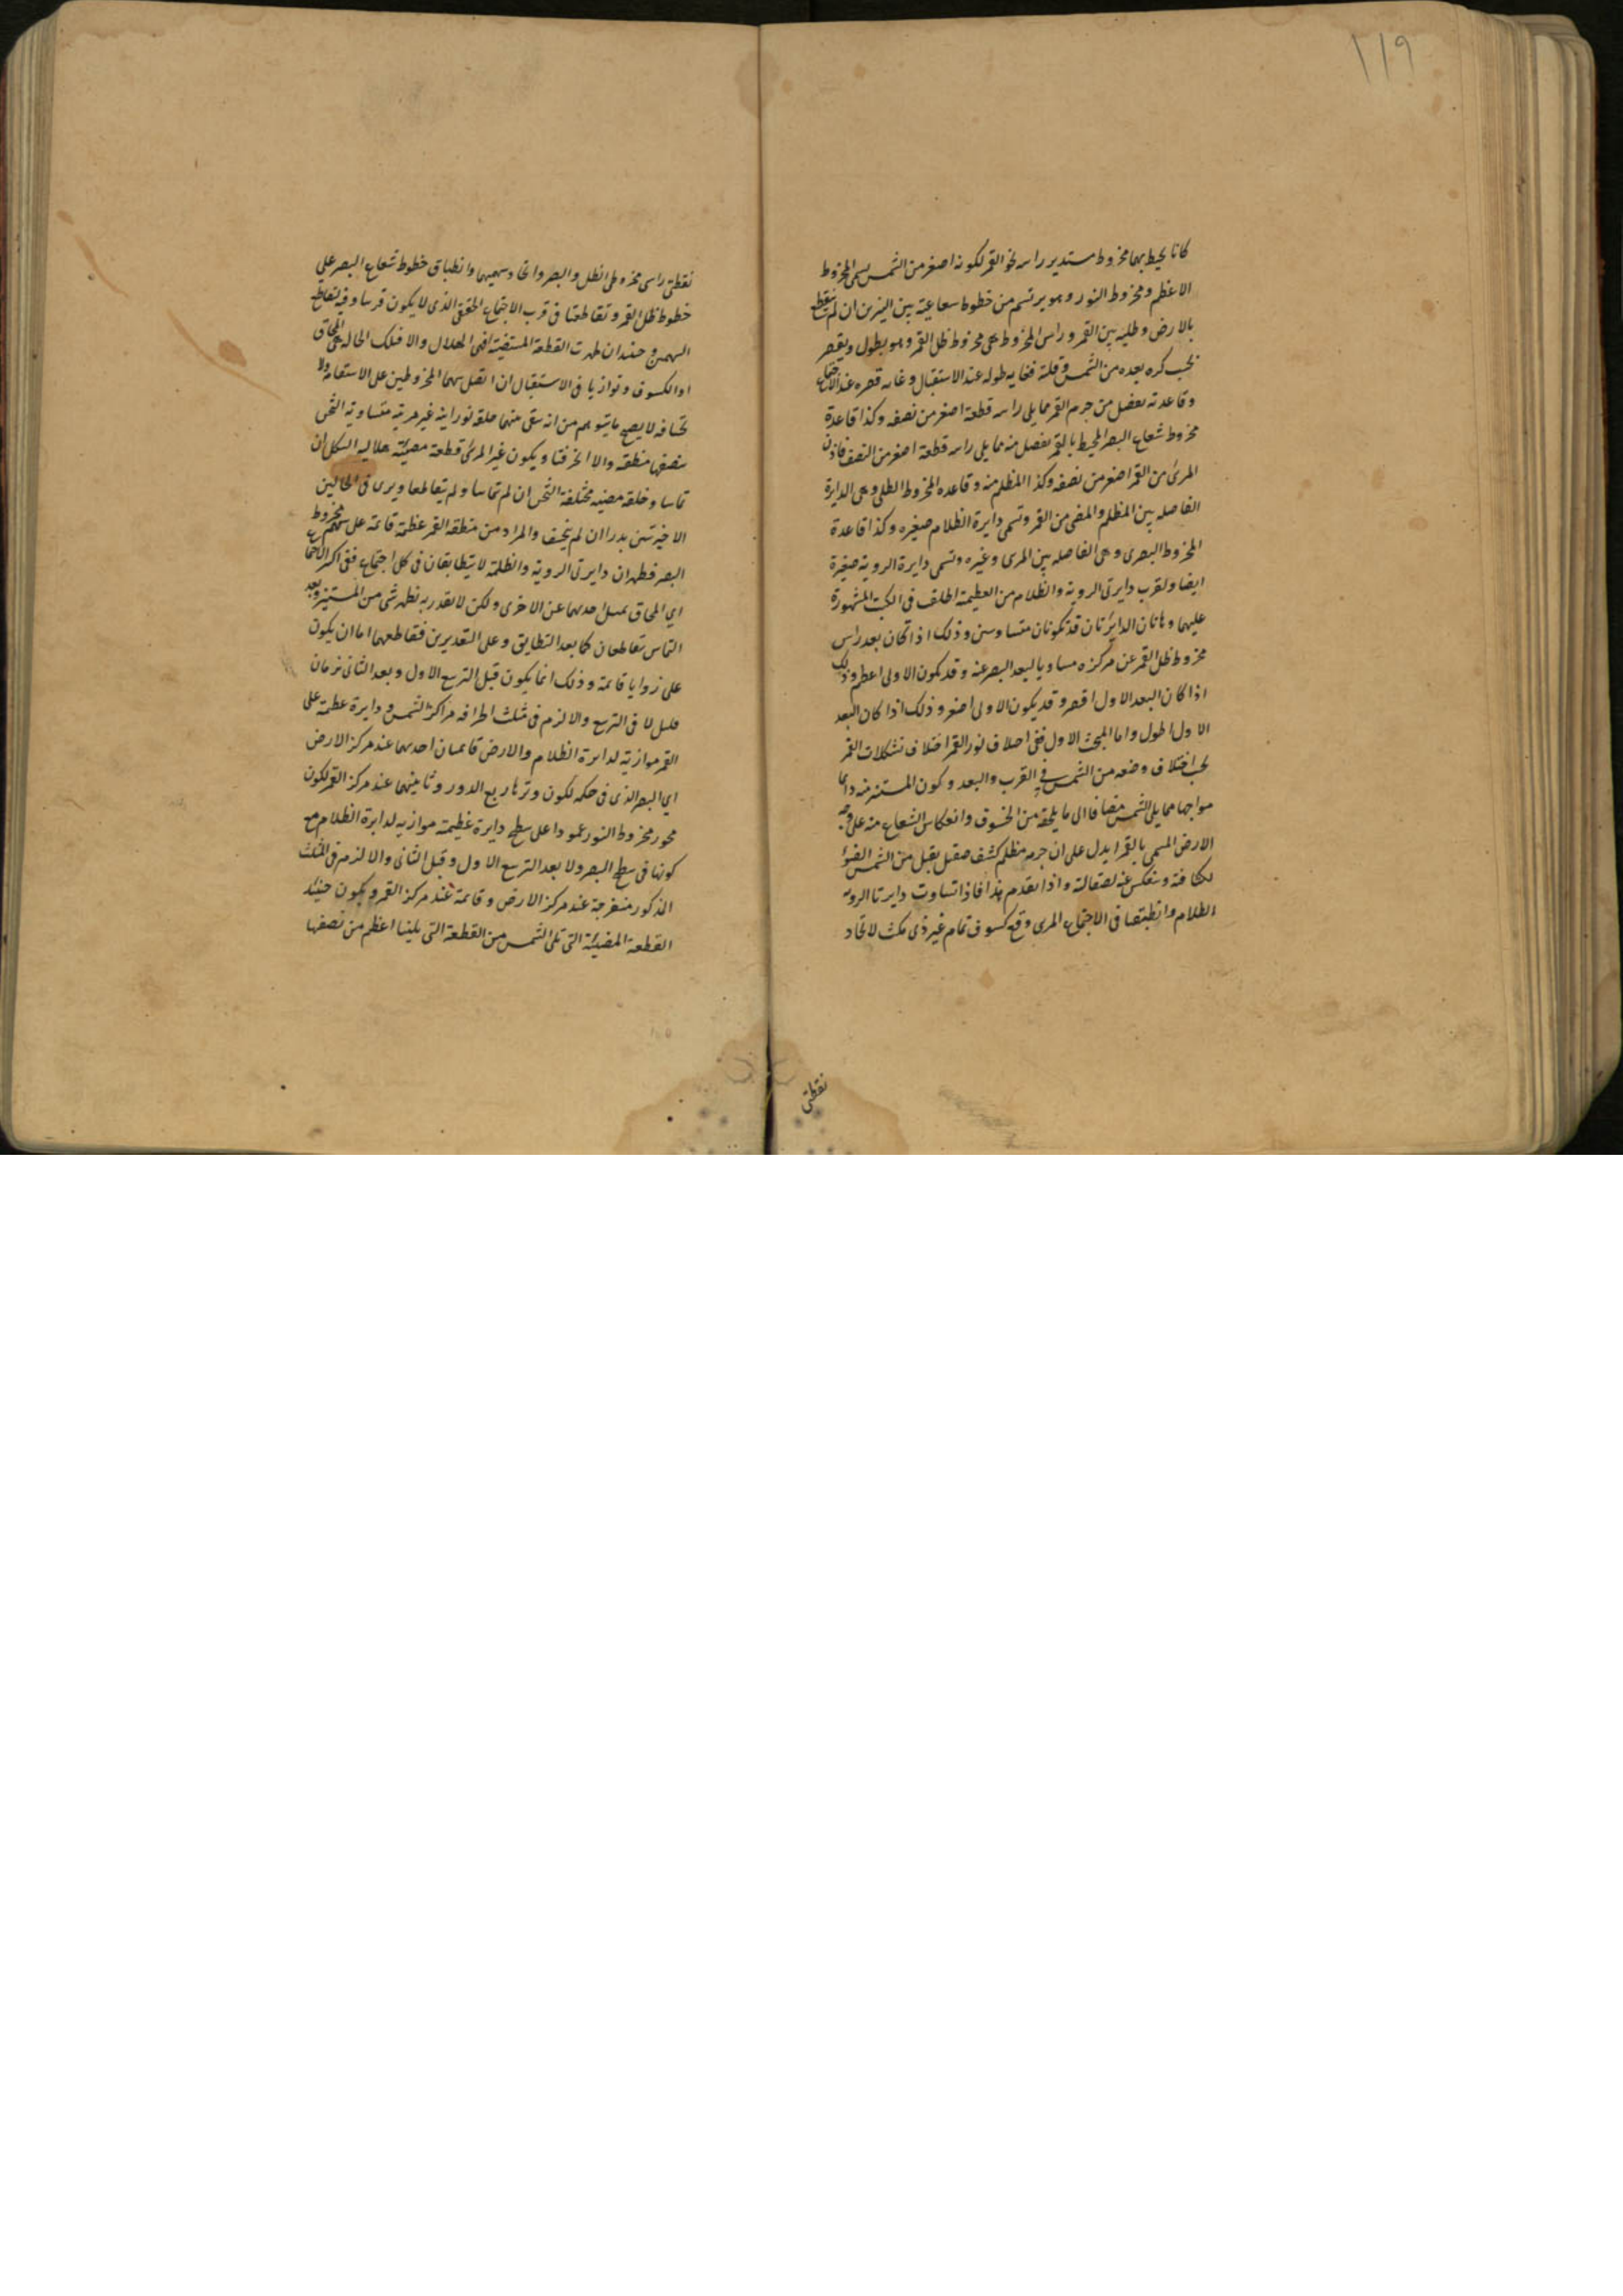 ١١٩
كانا يحيط بهما مخروط مستدير راسه نحو القمر لكونه اصغر من الشمس يسمى المخروط
الاعظم ومخروط النور وهو يرتسم من خطوط شعاعية بين النيرين ان لم ينقطع
بالارض وظليه بين القمر وراس المخروط هى مخروط ظل القمر وهو يطول ويقصر
بحسب كره بعده من الشمس وقلته فغايه طوله عند الاستقبال وغايه قصره عند الاجتماع
وقاعدته يفصل من جرم القمر مما يلى راسه قطعة اصغر من نصفه وكذا قاعدة
مخروط شعاع البصر المحيط بالقمر يفصل منه مما يلى راسه قطعة اصغر من النصف فاذن
المرئ من القمر اصغر من نصفه وكذا المظلم منه وقاعده المخروط الظلى وهى الدايرة
الفاصله بين المظلم والمضى من القمر وتسمى دايرة الظلام صغيره وكذا قاعدة
المخروط البصرى وهى الفاصله بين المرى وغيره وتسمى دايرة الروية صغيرة
ايضا ولقرب دايرتى الروية والظلام من العظيمة اطلقت فى الكتب المشهورة
عليهما وهاتان الدايرتان قد تكونان متساويتين وذلك اذا كان بعد راس
مخروط ظل القمر عن مركزه مساويا لبعد البصر عنه وقد يكون الاولى اعظم وذلك
اذا كان البعد الاول اقصر وقد يكون الاولى اصغر وذلك اذا كان البعد
الاول اطول واما المبحث الاول ففى اختلاف نور القمر اختلاف تشكلات القمر
بحسب اختلاف وضعه من الشمس فى القرب والبعد وكون المستنير منه دايما
مواجها مما يلى الشمس مضافا الى ما يلحقه من الخسوف وانعكاس الشعاع منه على وجه
الارض المسمى بالقمرا يدل على ان جرمه مظلم كثيف صقيل يقبل من الشمس الضوء
لكثافته وينعكس عنه لصقالته واذا تقدم هذا فاذا تساوت دايرتا الروية
الظلام وانطبقتا فى الاجتماع المرى وقع كسوف تام غير ذى مكث لاتحاد
نقطتى
نقطتى راسى مخروطى الظل والبصر واتحاد سهميهما وانطباق خطوط شعاع البصر على
خطوط ظل القمر وتقاطعتا فى قرب الاجتماع الحقيقى الذى لا يكون قرسا وفيه تقاطع
السهمين وحينئذ ان ظهرت القطعة المستضيئة فهى الهلال والا فتلك الحاله هى المحاق
او الكسوف وتوازيا فى الاستقبال ان اتصل سهما المخروطين على الاستقامة ولا
تخسافه لا يصح ما يتوهم من انه يبقى منهما حلقه نورانية غير مرية متساوية الثخن
منصفها منطقه والا انحرفتا ويكون غير المرئ قطعة مضيئة هلاليه الشكل ان
تماسا وحلقه مضيه مختلفة الثخن ان لم تماسا ولم يتقاطعا ويرى فى الحالين
الاخيرتين بدرا ان لم ينخسف والمراد من منطقه القمر عظيمة قائمة على سهم مخروط
البصر فظهر ان دايرتى الروية والظلمة لا يتطابقان فى كل اجتماع ففى اكثر الاجتماع
اى المحاق تميل احديهما عن الاخرى ولكن لا بقدر به يظهر شى من المستنير وبعد
التماس تتقاطعان كما بعد التطابق وعلى التقديرين فتقاطعهما اما ان يكون
على زوايا قائمة وذلك انما يكون قبل التربيع الاول وبعد الثانى بزمان
قليل لا فى التربيع والا لزم فى مثلث اطرافه مراكز الشمس ودايرة عظيمة على
القمر موازية لدايرة الظلام والارض قائمتان احديهما عند مركز الارض
اى البصر الذى فى حكمه لكون وترها ربع الدور وثانيتهما عند مركز القمر لكون
محور مخروط النور عمودا على سطح دايرة عظيمة موازيه لدايرة الظلام مع
كونها فى سطح البصر ولا بعد التربيع الاول وقبل الثانى والا لزم فى المثلث
المذكور منفرجة عند مركز الارض وقائمة عند مركز القمر ويكون حينئذ
القطعة المضيئة التى تلى الشمس من القطعة التى يلينا اعظم من نصفها